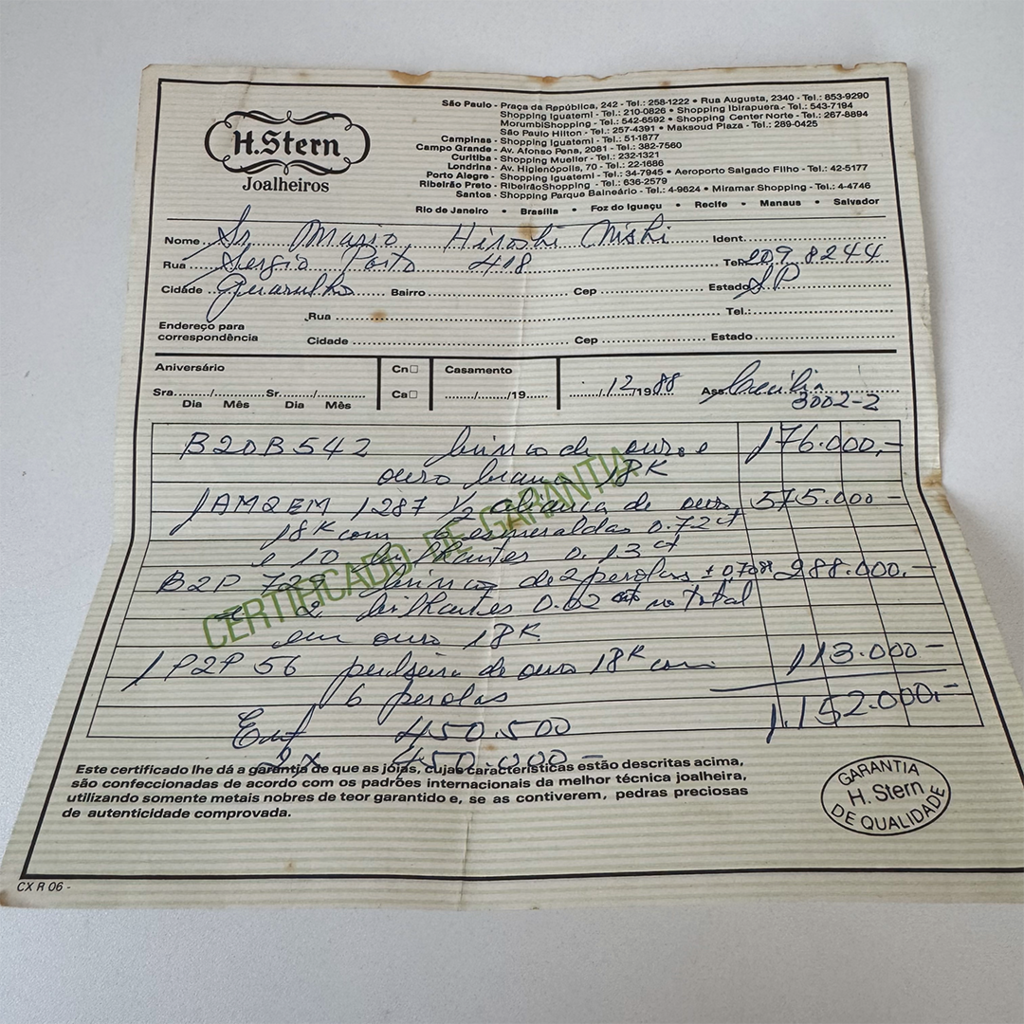 H.Stern
Joalheiros
São Paulo - Praça da República, 242 - Tel.: 258-1222 • Rua Augusta, 2340 - Tel.: 853-9290
Shopping Iguatemi - Tel.: 210-0826 • Shopping Ibirapuera - Tel.: 543-7194
MorumbiShopping - Tel.: 542-6592 • Shopping Center Norte - Tel.: 267-8894
São Paulo Hilton - Tel.: 257-4391 • Maksoud Plaza - Tel.: 289-0425
Campinas - Shopping Iguatemi - Tel.: 51-1877
Campo Grande - Av. Afonso Pena, 2081 - Tel.: 382-7560
Curitiba - Shopping Mueller - Tel.: 232-1321
Londrina - Av. Higienópolis, 70 - Tel.: 22-1686
Porto Alegre - Shopping Iguatemi - Tel.: 34-7945 • Aeroporto Salgado Filho - Tel.: 42-5177
Ribeirão Preto - RibeirãoShopping - Tel.: 636-2579
Santos - Shopping Parque Balneário - Tel.: 4-9624 • Miramar Shopping - Tel.: 4-4746
Rio de Janeiro • Brasília • Foz do Iguaçu • Recife • Manaus • Salvador
Nome Sr. Mario Hiroshi Nishi Ident.
Rua Sergio Porto 418 Tel. 209.8244
Cidade Guarulho Bairro Cep Estado SP
Rua Tel.:
Endereço para
correspondência
Cidade Cep Estado
Aniversário Cn Casamento
Sra. / Sr. / Ca / /19 12/1988 Ass. Cecilia
Dia Mês Dia Mês 3002-2
B20B542 brinco de ouro e 176.000,-
ouro branco 18K
1AM2EM 1287 1/2 aliança de ouro 575.000-
18K com esmeraldas 0.72ct
e 10 brilhantes 0.13ct
B2P brinco de 2 perolas ± 288.000.-
2 brilhantes 0.02 no total
em ouro 18K
1P2P56 pulseira de ouro 18K com 113.000-
6 perolas 1.152.000,-
Ent 450.500
2x 450.000-
CERTIFICADO DE GARANTIA
Este certificado lhe dá a garantia de que as jóias, cujas características estão descritas acima,
são confeccionadas de acordo com os padrões internacionais da melhor técnica joalheira,
utilizando somente metais nobres de teor garantido e, se as contiverem, pedras preciosas
de autenticidade comprovada.
GARANTIA
H. Stern
DE QUALIDADE
CX R 06 -